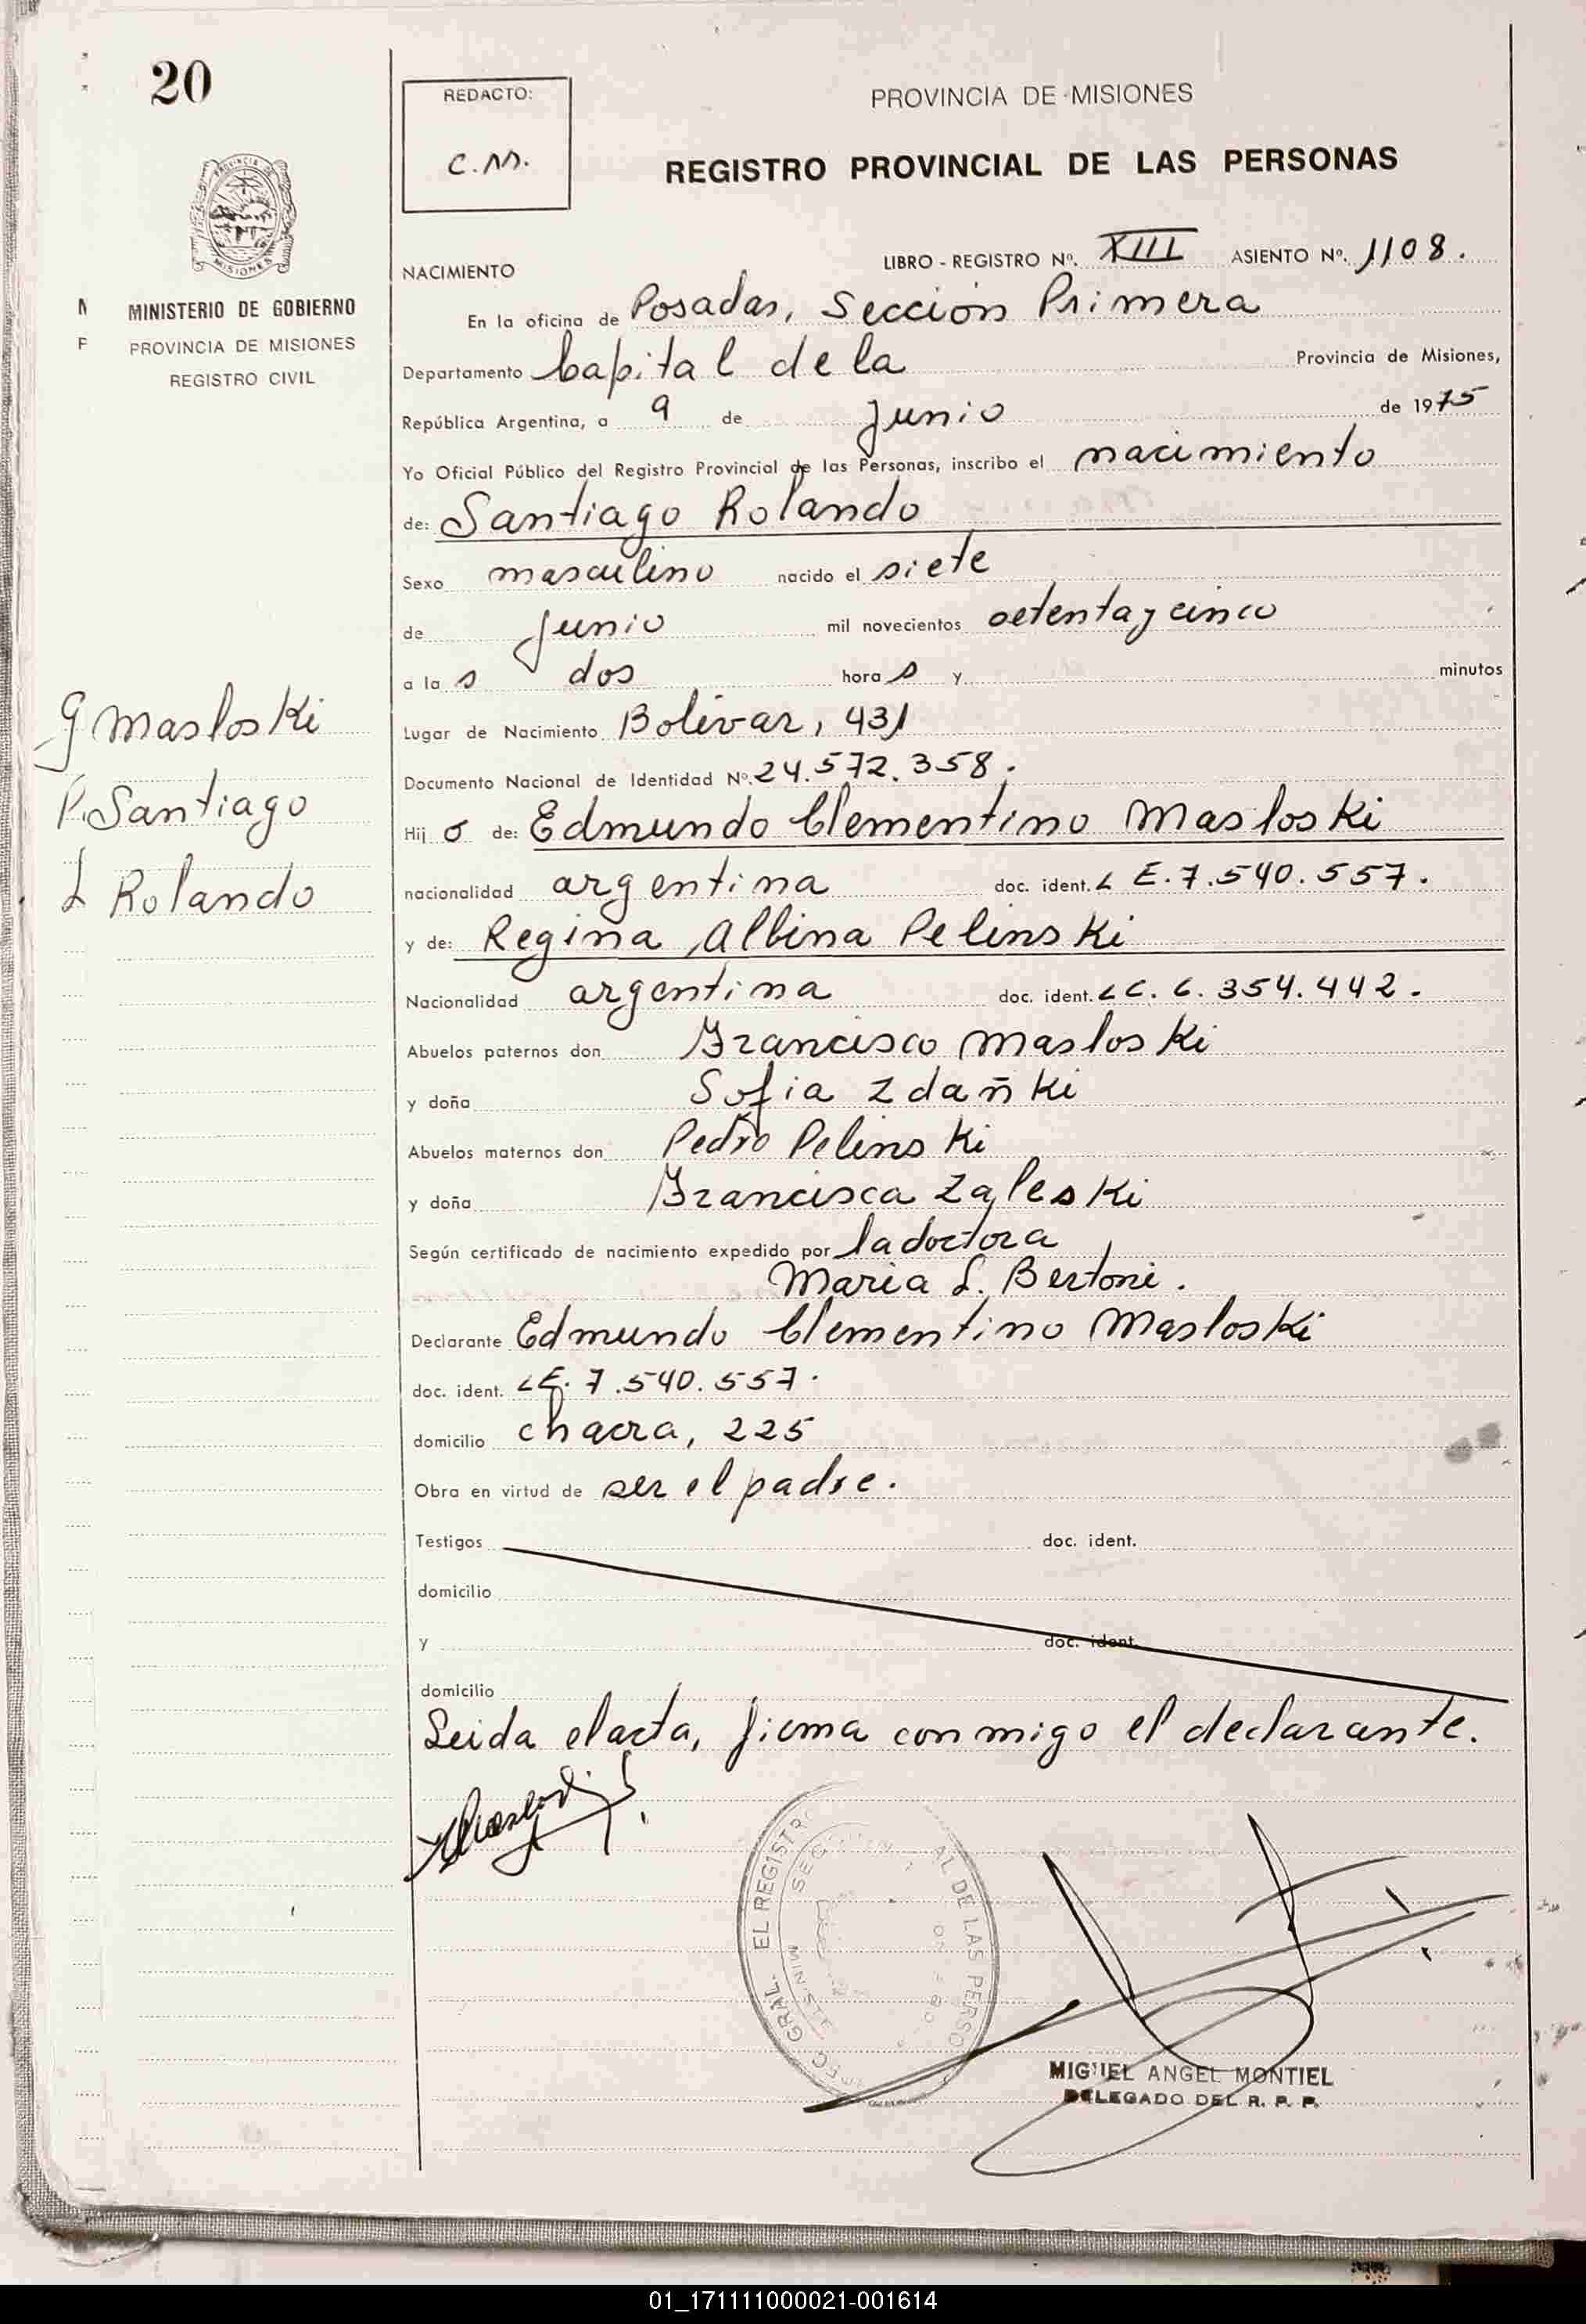 20
MINISTERIO DE GOBIERNO
PROVINCIA DE MISIONES
REGISTRO CIVIL
Masloski
Santiago
Rolando
REDACTO:
C.M.
PROVINCIA DE MISIONES
REGISTRO PROVINCIAL DE LAS PERSONAS
LIBRO - REGISTRO Nº. XIII ASIENTO Nº. 1108.
NACIMIENTO
En la oficina de Posadas, Sección Primera
Departamento Capital de la Provincia de Misiones,
República Argentina, a 9 de Junio de 1975
Yo Oficial Público del Registro Provincial de las Personas, inscribo el nacimiento
de: Santiago Rolando
Sexo masculino nacido el siete
de Junio mil novecientos setenta y cinco
a la s dos hora s y minutos
Lugar de Nacimiento Bolívar, 431
Documento Nacional de Identidad Nº. 24.572.358.
Hij o de: Edmundo Clementino Masloski
nacionalidad argentina doc. ident. L E. 7.540.557.
y de: Regina Albina Pelinski
Nacionalidad argentina doc. ident. L C. 6.354.442.
Abuelos paternos don Francisco Masloski
y doña Sofia Zdañki
Abuelos maternos don Pedro Pelinski
y doña Francisca Zaleski
Según certificado de nacimiento expedido por la doctora
Maria L. Bertoni.
Declarante Edmundo Clementino Masloski
doc. ident. LE. 7.540.557.
domicilio chacra, 225
Obra en virtud de ser el padre.
Testigos doc. ident.
domicilio
y doc. ident.
domicilio
Leida el acta, firma conmigo el declarante.
EL REGISTR AL DE LAS PERSO
MIGUEL ANGEL MONTIEL
DELEGADO DEL R. P. P.
01_171111000021-001614